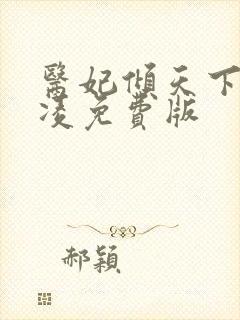 醫妃傾天下
凌免費版
郝穎